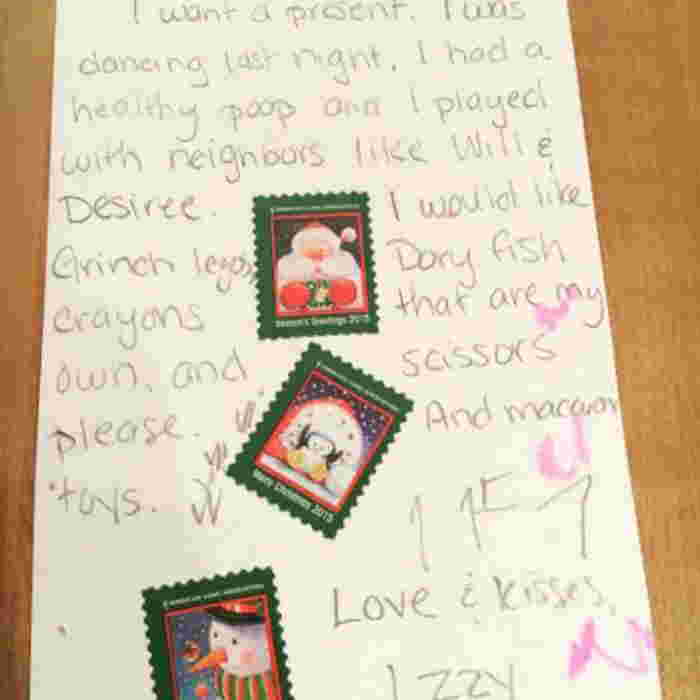 I want a present. I was
dancing last night. I had a
healthy poop and I played
with neighbors like Will &
Desiree. I would like
Grinch legos, Dory fish
crayons that are my
own, and scissors
please. And macaron
toys.
Season's Greetings 2015
Merry Christmas 2015
Love & kisses,
Izzy